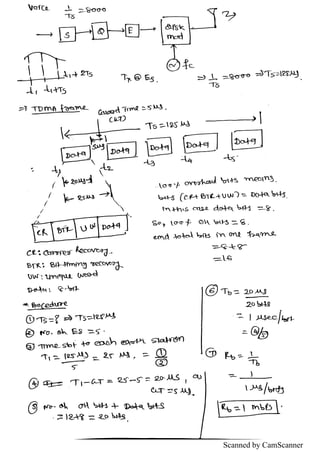 Voice 1/Ts = 8000
S
Q
E
QPSK
mod
fc
t1 t1+Ts
t1+2Ts
Tx @ ES.
⇒ 1/Ts = 8000 ⇒ Ts=125μs
⇒ TDMA frame
Guard Time = 5μs.
(G.T)
Ts = 125μs
5μs
Data Data Data Data Data
t1 t2 t3 t4 t5
20μs
25μs
CR BTR UW Data
100% overhead bits means,
bits (CR+BTR+UW) = Data bits
In this case data bits = 8.
So, 100% OH bits = 8.
and total bits in one frame
= 8+8
= 16
CR: Carrier Recovery.
BTR: Bit timing recovery.
UW: Unique word
Data: 8-bit
* Procedure
① Ts=? ⇒ Ts=125μs
② No. of ES = 5.
③ Time slot to each earth station
T1 = 125μs/5 = 25 μs.
④ T1 - G.T = 25-5 = 20μs,
G.T = 5μs.
⑤ No. of OH bits + Data bits
= 12+8 = 20 bits.
⑥ Tb = 20 μs
20 bits
= 1 μsec/bit
⑦ Rb = 1/Tb
= 1
1 μs/bits
Rb = 1 Mbps
Scanned by CamScanner